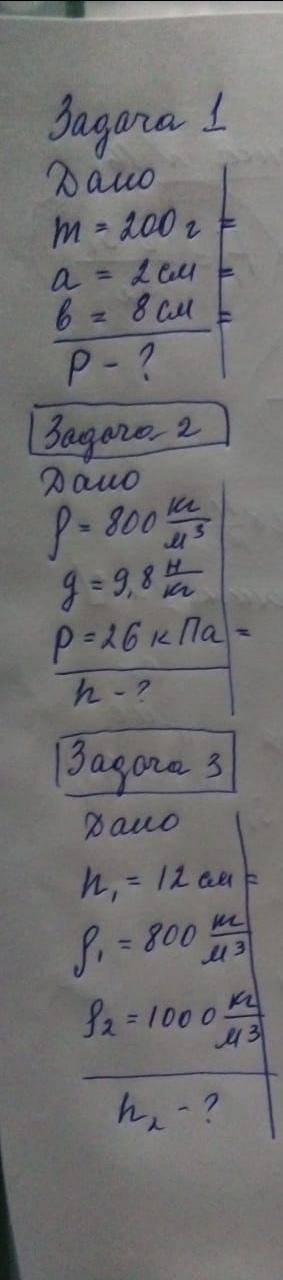 Задача 1
Дано
m = 200 г =
a = 2 см =
в = 8 см =
p - ?
Задача 2
Дано
ρ = 800 кг/м³
g = 9,8 н/кг
p = 26 кПа =
h - ?
Задача 3
Дано
h₁ = 12 см =
ρ₁ = 800 кг/м³
ρ₂ = 1000 кг/м³
h₂ - ?